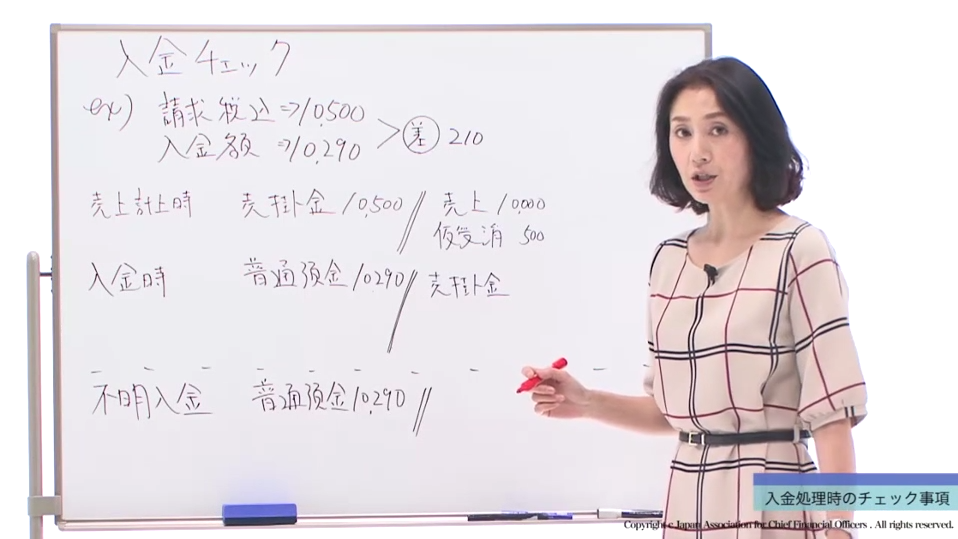 入金チェック
ex) 請求税込⇒10,500
入金額⇒10,290 > 差 210
売上計上時 売掛金 10,500 // 売上 10,000
仮受消 500
入金時 普通預金 10,290 // 売掛金
不明入金 普通預金 10,290 //
入金処理時のチェック事項
Copyright c Japan Association for Chief Financial Officers . All rights reserved.